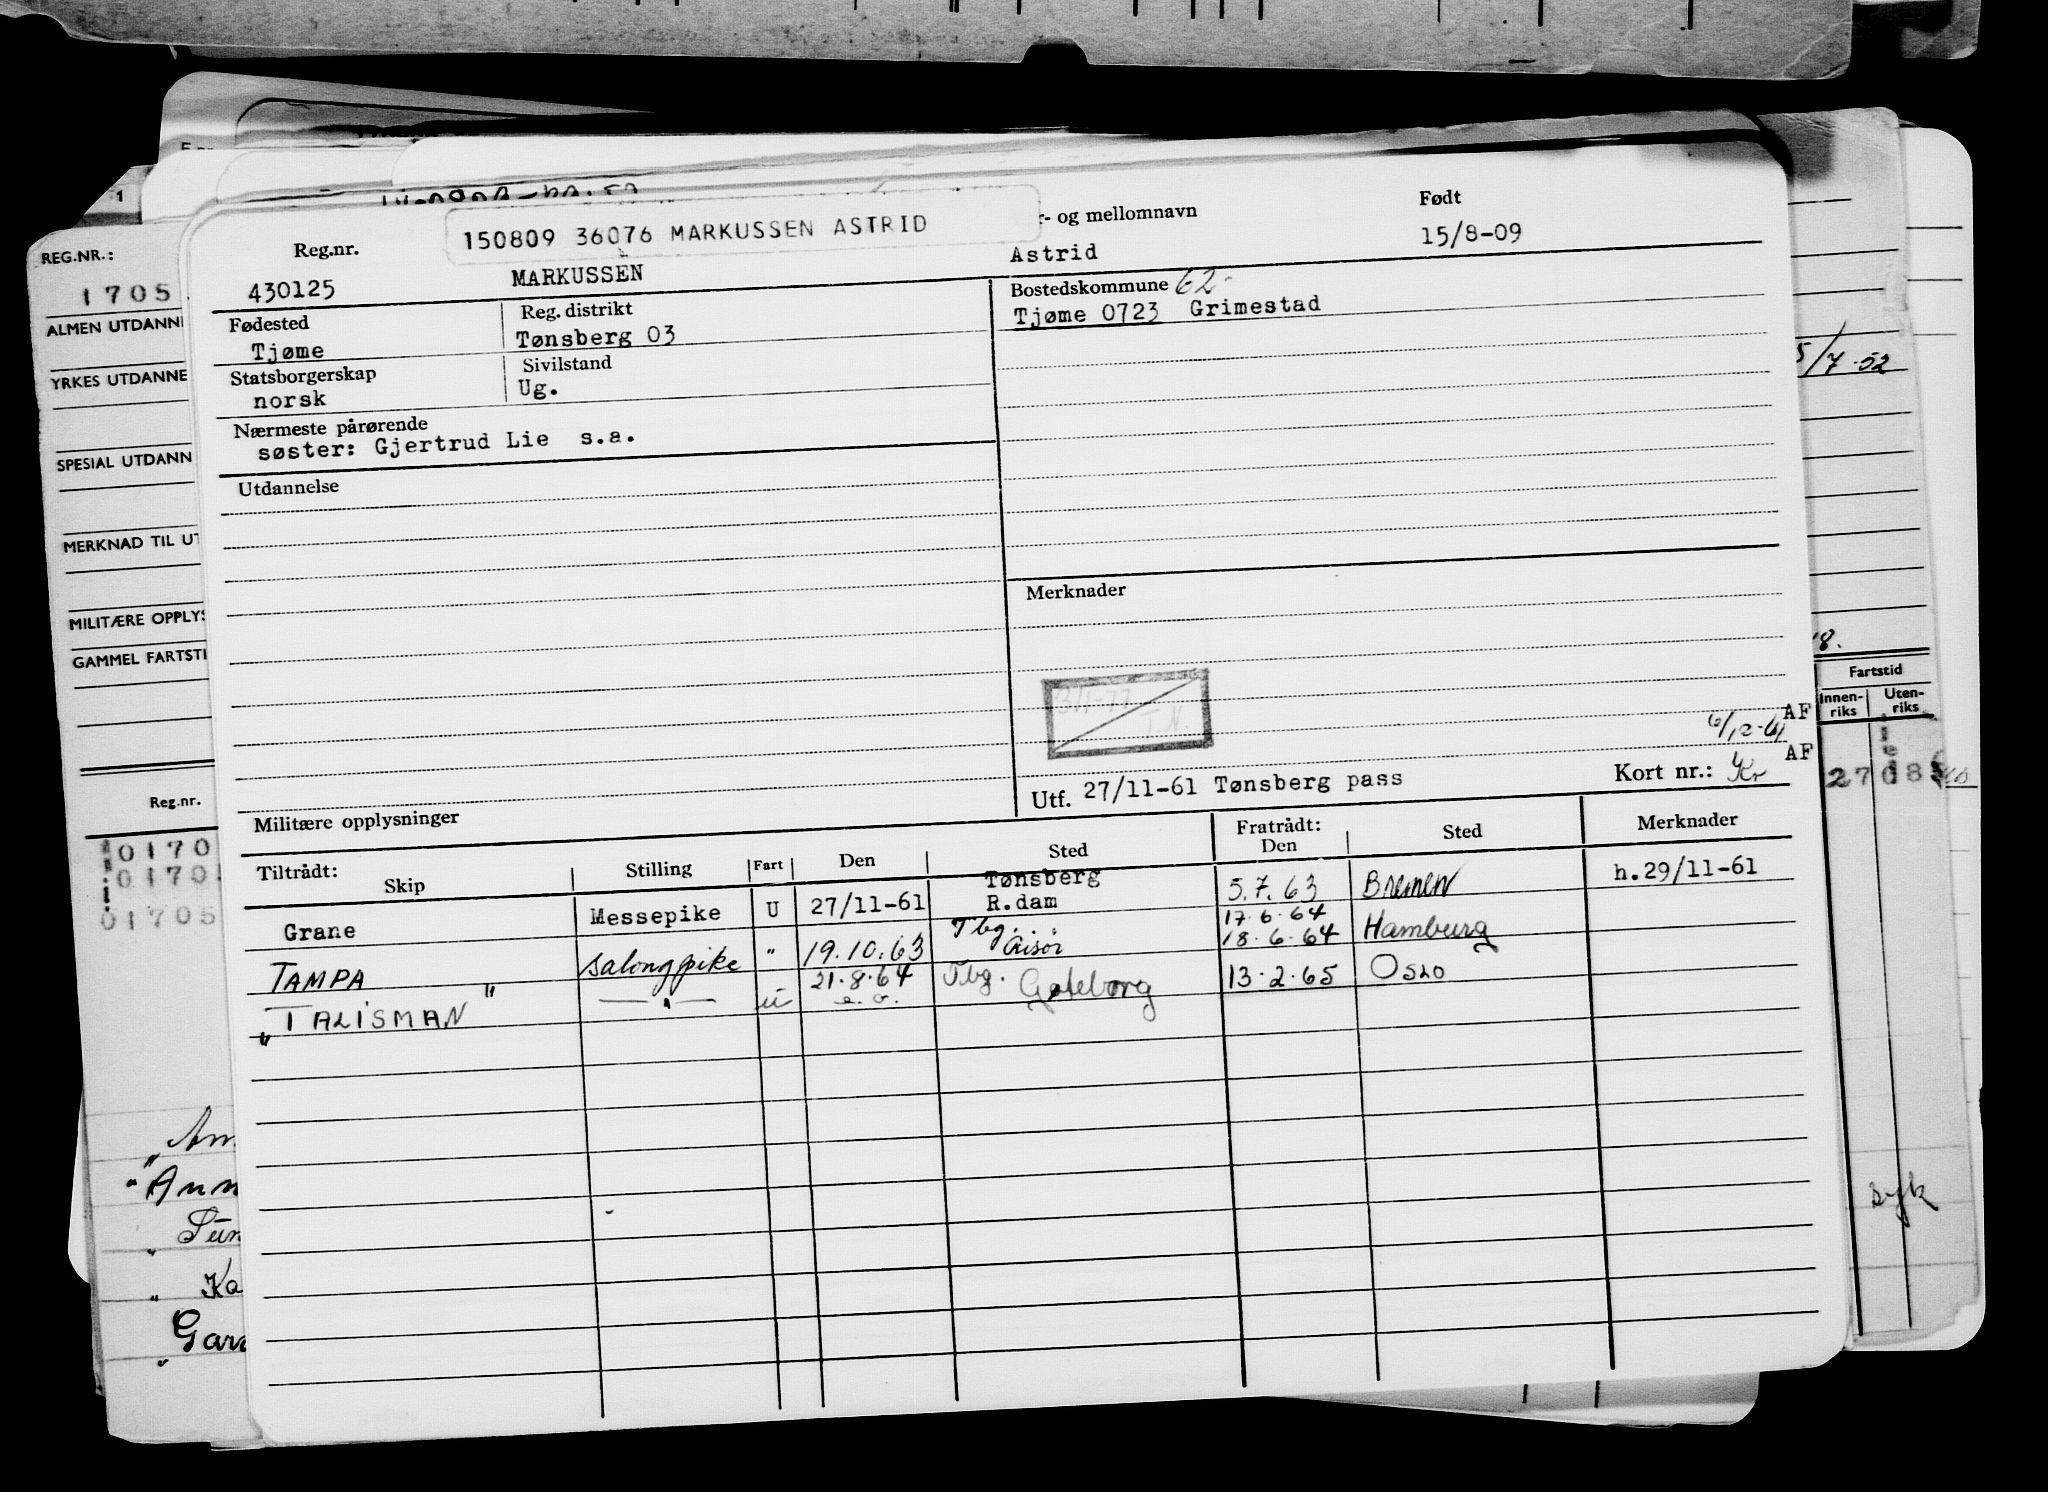 REG.NR.:
1705
ALMEN UTDANNE
YRKES UTDANNE
SPESIAL UTDANN
MERKNAD TIL UT
MILITÆRE OPPLYS
GAMMEL FARTSTI
Reg.nr.
01705
150809 36076 MARKUSSEN ASTRID
r- og mellomnavn
Født
Reg.nr.
MARKUSSEN
Astrid
15/8-09
430125
Fødested
Tjøme
Reg. distrikt
Tønsberg 03
Bostedskommune 62-
Tjøme 0723 Grimestad
Statsborgerskap
norsk
Sivilstand
Ug.
Nærmeste pårørende
søster: Gjertrud Lie s.a.
Utdannelse
Merknader
3/1-77
T.N.
6/12-61 AF
AF
Utf. 27/11-61 Tønsberg pass
Kort nr.: Kr
Militære opplysninger
Tiltrådt:
Skip
Stilling
Fart
Den
Sted
Fratrådt:
Den
Sted
Merknader
Grane Messepike U 27/11-61 Tønsberg R.dam 5.7.63 Bremen h.29/11-61
TAMPA salongpike " 19.10.63 Tbg. 17.6.64 18.6.64 Hamburg
"TALISMAN" —"— u 21.8.64 e.o. Tbg. Gøteborg 13.2.65 Oslo
5/7.52
18.
Fartstid
Innen-
riks
Uten-
riks
syk
Ann
Ka